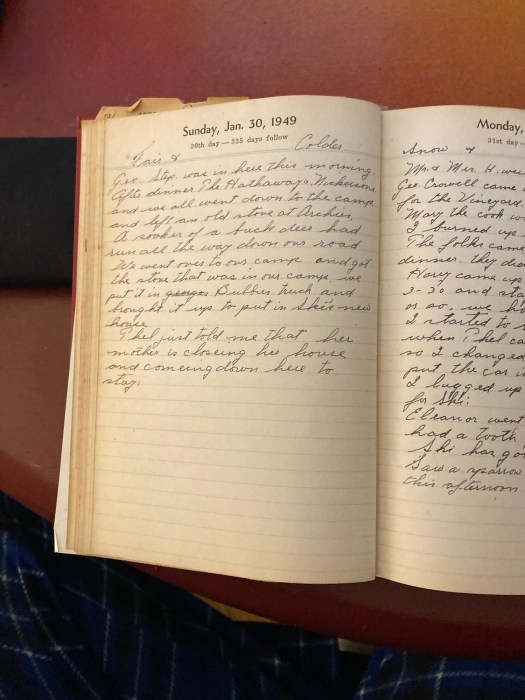 Sunday, Jan. 30, 1949
30th day—335 days follow
Fair & Colder
Geo. Step. was in here this morning.
After dinner The Hathaways, Nickersons
and we all went down to the camp
and left an old stove at Archies,
A soaker of a buck deer had
run all the way down our road
We went over to our camp and got
the stove that was in our camp we
put it in georges Bubbies truck and
brought it up to put in Ski's new
house
Thel just told me that her
mother is closeing her house
and comeing down here to
stay.
Monday,
31st day—
Snow &
Mr. & Mrs. H. we
Geo. Crowell came
for the Vineyard.
Mary the cook w
I burned up
The folks came
dinner. they did
Harry came up
3-30 and sta
or so. we
I started to
when Thel ca
so I changed
put the car i
I lugged up
for Ski.
Eleanor went
had a tooth
Ski has go
Saw a sparrow
this afternoon